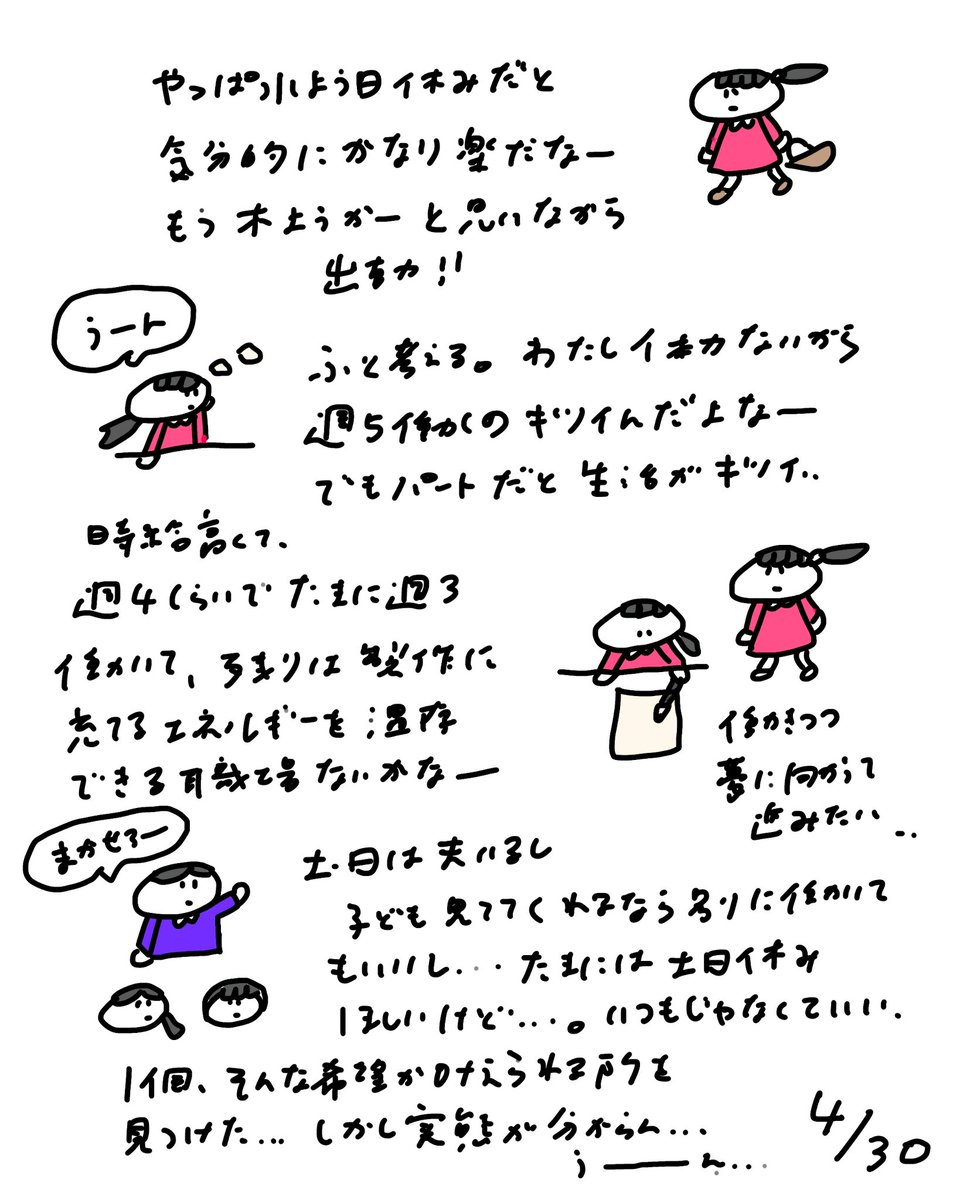 やっぱ水よう日休みだと
気分的にかなり楽だなー
もう木ようかーと思いながら
出勤!!
うート
ふと考える。わたし体力ないから
週5働くのキツイんだよなー
でもパートだと生活がキツイ..
時給高くて、
週4くらいでたまに週3
働いて、あまりは製作に
充てるエネルギーを温存
できる職場ないかなー
働きつつ
夢に向かって
進みたい..
まかせろー
土・日は夫いるし
子ども見ててくれるなら別に働いて
もいいし...たまには土日休み
ほしいけど...。いつもじゃなくていい.
1個、そんな希望が叶えられる所を
見つけた...しかし実態が分からん...
うーん...
4/30